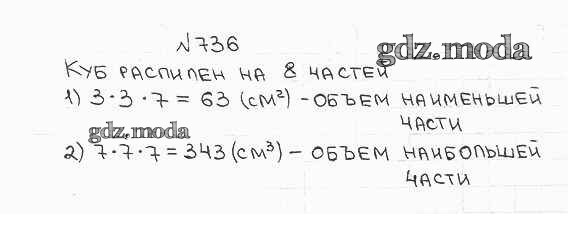 №736
gdz.moda
КУБ РАСПИЛЕН НА 8 ЧАСТЕЙ
1) 3·3·7=63 (СМ²) - ОБЪЕМ НАИМЕНЬШЕЙ
ЧАСТИ
gdz.moda
2) 7·7·7=343 (СМ³) - ОБЪЕМ НАИБОЛЬШЕЙ
ЧАСТИ